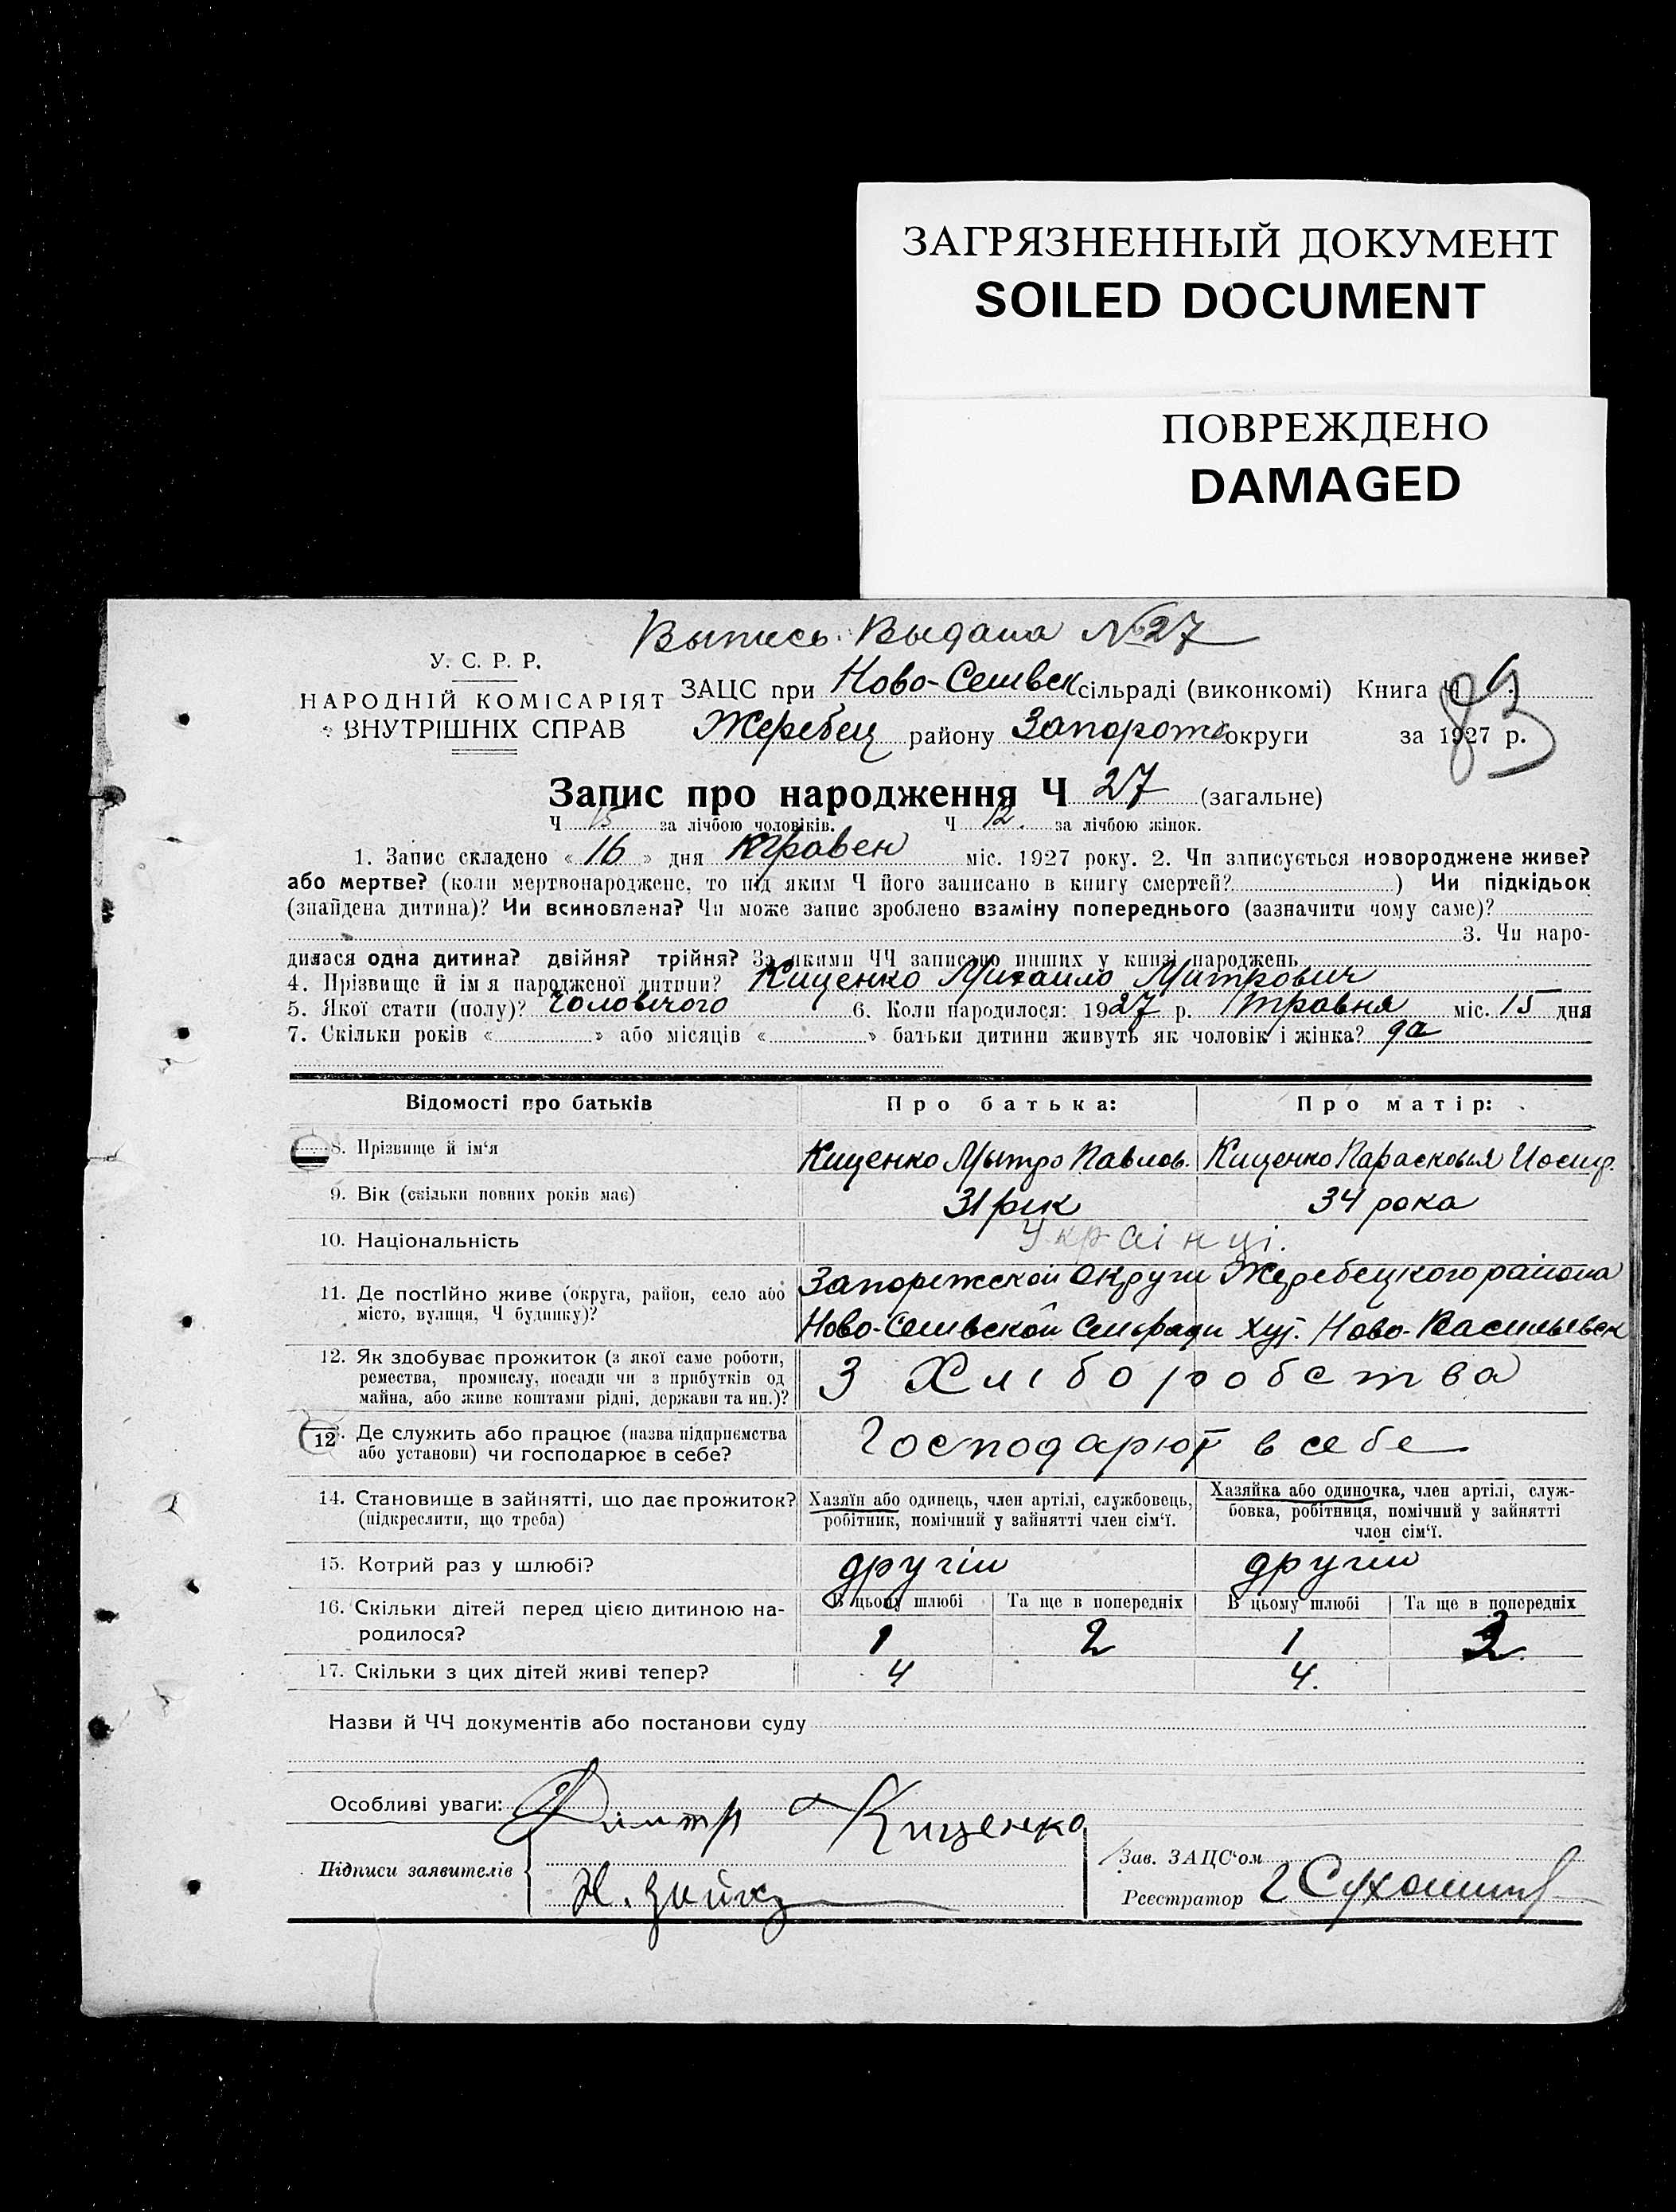 ЗАГРЯЗНЕННЫЙ ДОКУМЕНТ
SOILED DOCUMENT
ПОВРЕЖДЕНО
DAMAGED
Выпись Выдана №27
У. С. Р. Р.
НАРОДНІЙ КОМІСАРІЯТ
ВНУТРІШНІХ СПРАВ
ЗАЦС при Ново-Селивск сільраді (виконкомі) Книга Ч
83
Жеребец району Запорож округи за 1927 р.
Запис про народження Ч 27 (загальне)
Ч 15 за лічбою чоловіків. Ч 12. за лічбою жінок.
1. Запис складено «16» дня травен міс. 1927 року. 2. Чи записується новороджене живе?
або мертве? (коли мертвонароджене, то під яким Ч його записано в книгу смертей? ) Чи підкідьок
(знайдена дитина)? Чи всиновлена? Чи може запис зроблено взаміну попереднього (зазначити чому саме)?
3. Чи наро-
дилася одна дитина? двійня? трійня? За якими ЧЧ записано инших у книзі народжень
4. Прізвище й ім я народженої дитини? Кищенко Михайло Митрович
5. Якої стати (полу)? Чоловічого 6. Коли народилося: 1927 р. травня міс. 15 дня
7. Скільки років « » або місяців « » батьки дитини живуть як чоловік і жінка? да
Відомості про батьків Про батька: Про матір:
8. Прізвище й ім‘я Кищенко Мытро Павлов. Кищенко Парасковья Иосиф.
9. Вік (скільки повних років має) 31 рік 34 рока
10. Національність Українці.
11. Де постійно живе (округа, район, село або Запорежской Округи Жеребецкого района
місто, вулиця, Ч будинку)? Ново-Селивской Сельради хут. Ново-Васильевск
12. Як здобуває прожиток (з якої саме роботи,
ремества, промислу, посади чи з прибутків од
майна, або живе коштами рідні, держави та ин.)? З Хліборобства
12. Де служить або працює (назва підприємства
або установи) чи господарює в себе? Господарют в себе
14. Становище в зайнятті, що дає прожиток? Хазяїн або одинець, член артілі, службовець, Хазяйка або одиночка, член артілі, служ-
(підкреслити, що треба) робітник, помічний у зайнятті член сім‘ї. бовка, робітниця, помічний у зайнятті
член сім‘ї.
15. Котрий раз у шлюбі? другім другим
16. Скільки дітей перед цією дитиною на- В цьому шлюбі Та ще в попередніх В цьому шлюбі Та ще в попередніх
родилося? 1 2 1 2.
17. Скільки з цих дітей живі тепер? 4 4.
Назви й ЧЧ документів або постанови суду
Особливі уваги:
Димтр Кищенко
Підписи заявителів
Зав. ЗАЦС‘ом
Реєстратор